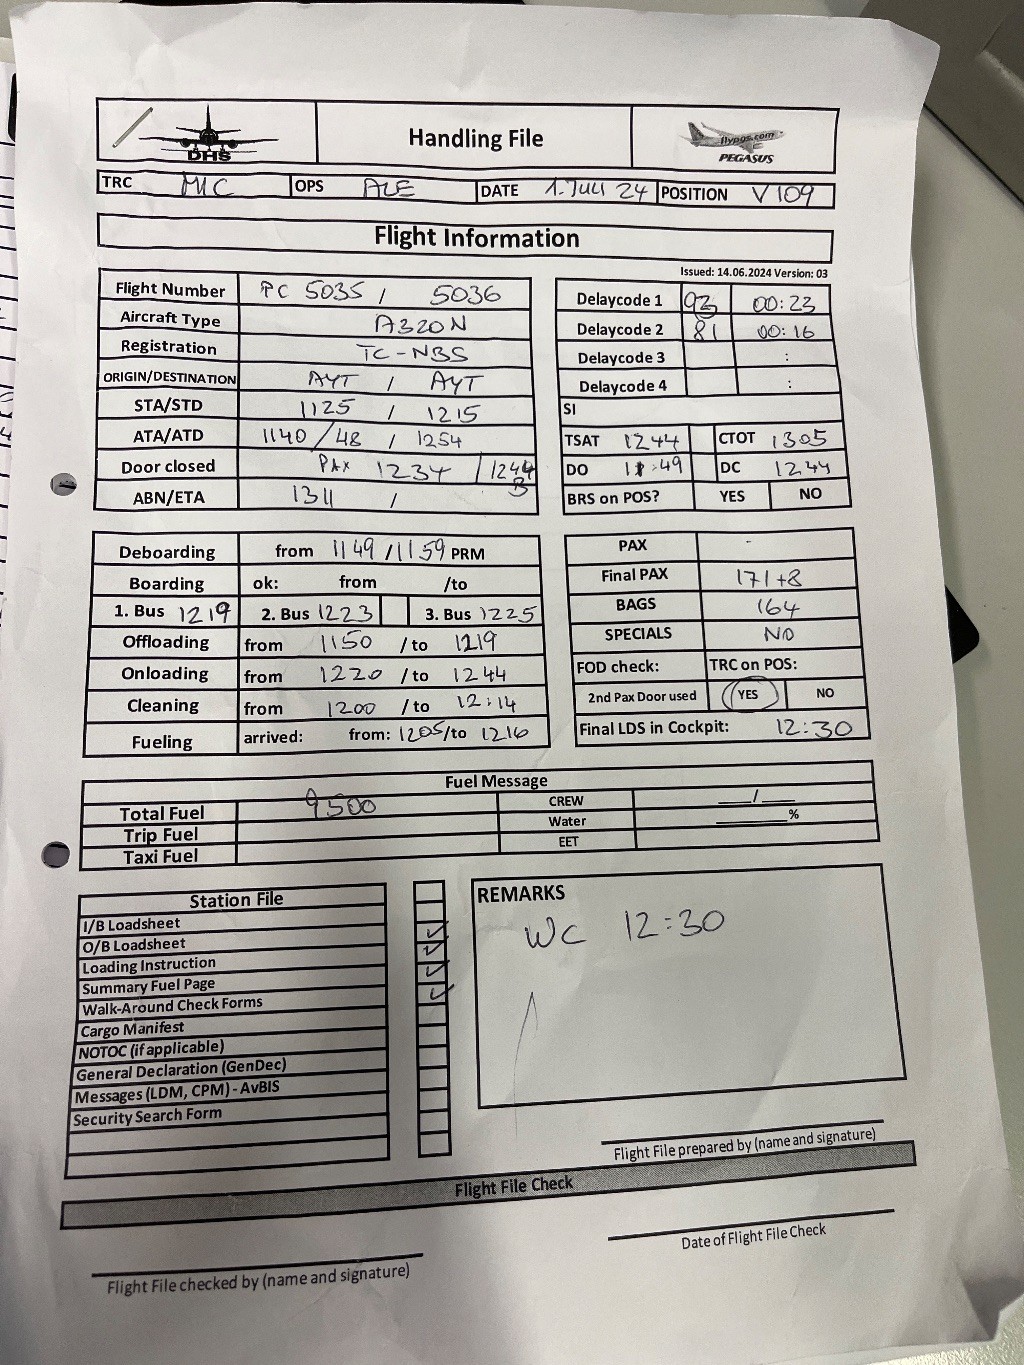 DHS
Handling File
flypgs.com
PEGASUS
TRC MIC OPS ALE DATE 1. JULI 24 POSITION V109
Flight Information
Issued: 14.06.2024 Version: 03
Flight Number PC 5035 / 5036
Aircraft Type A320N
Registration TC-NBS
ORIGIN/DESTINATION AYT / AYT
STA/STD 1125 / 1215
ATA/ATD 1140/48 / 1254
Door closed PAX 1234 / 1244 B
ABN/ETA 1311 /
Delaycode 1 93 00:23
Delaycode 2 81 00:16
Delaycode 3 :
Delaycode 4 :
SI
TSAT 1244 CTOT 1305
DO 11:49 DC 1244
BRS on POS? YES NO
Deboarding from 1149 /1159 PRM
Boarding ok: from /to
1. Bus 1219 2. Bus 1223 3. Bus 1225
Offloading from 1150 / to 1219
Onloading from 1220 / to 1244
Cleaning from 1200 / to 12:14
Fueling arrived: from: 1205/to 1216
PAX -
Final PAX 171+8
BAGS 164
SPECIALS NO
FOD check: TRC on POS:
2nd Pax Door used YES NO
Final LDS in Cockpit: 12:30
Fuel Message
Total Fuel 9500 CREW ___/___
Trip Fuel Water ______%
Taxi Fuel EET
Station File
I/B Loadsheet
O/B Loadsheet
Loading Instruction
Summary Fuel Page
Walk-Around Check Forms
Cargo Manifest
NOTOC (if applicable)
General Declaration (GenDec)
Messages (LDM, CPM) - AvBIS
Security Search Form
REMARKS
WC 12:30
Flight File prepared by (name and signature)
Flight File Check
Date of Flight File Check
Flight File checked by (name and signature)